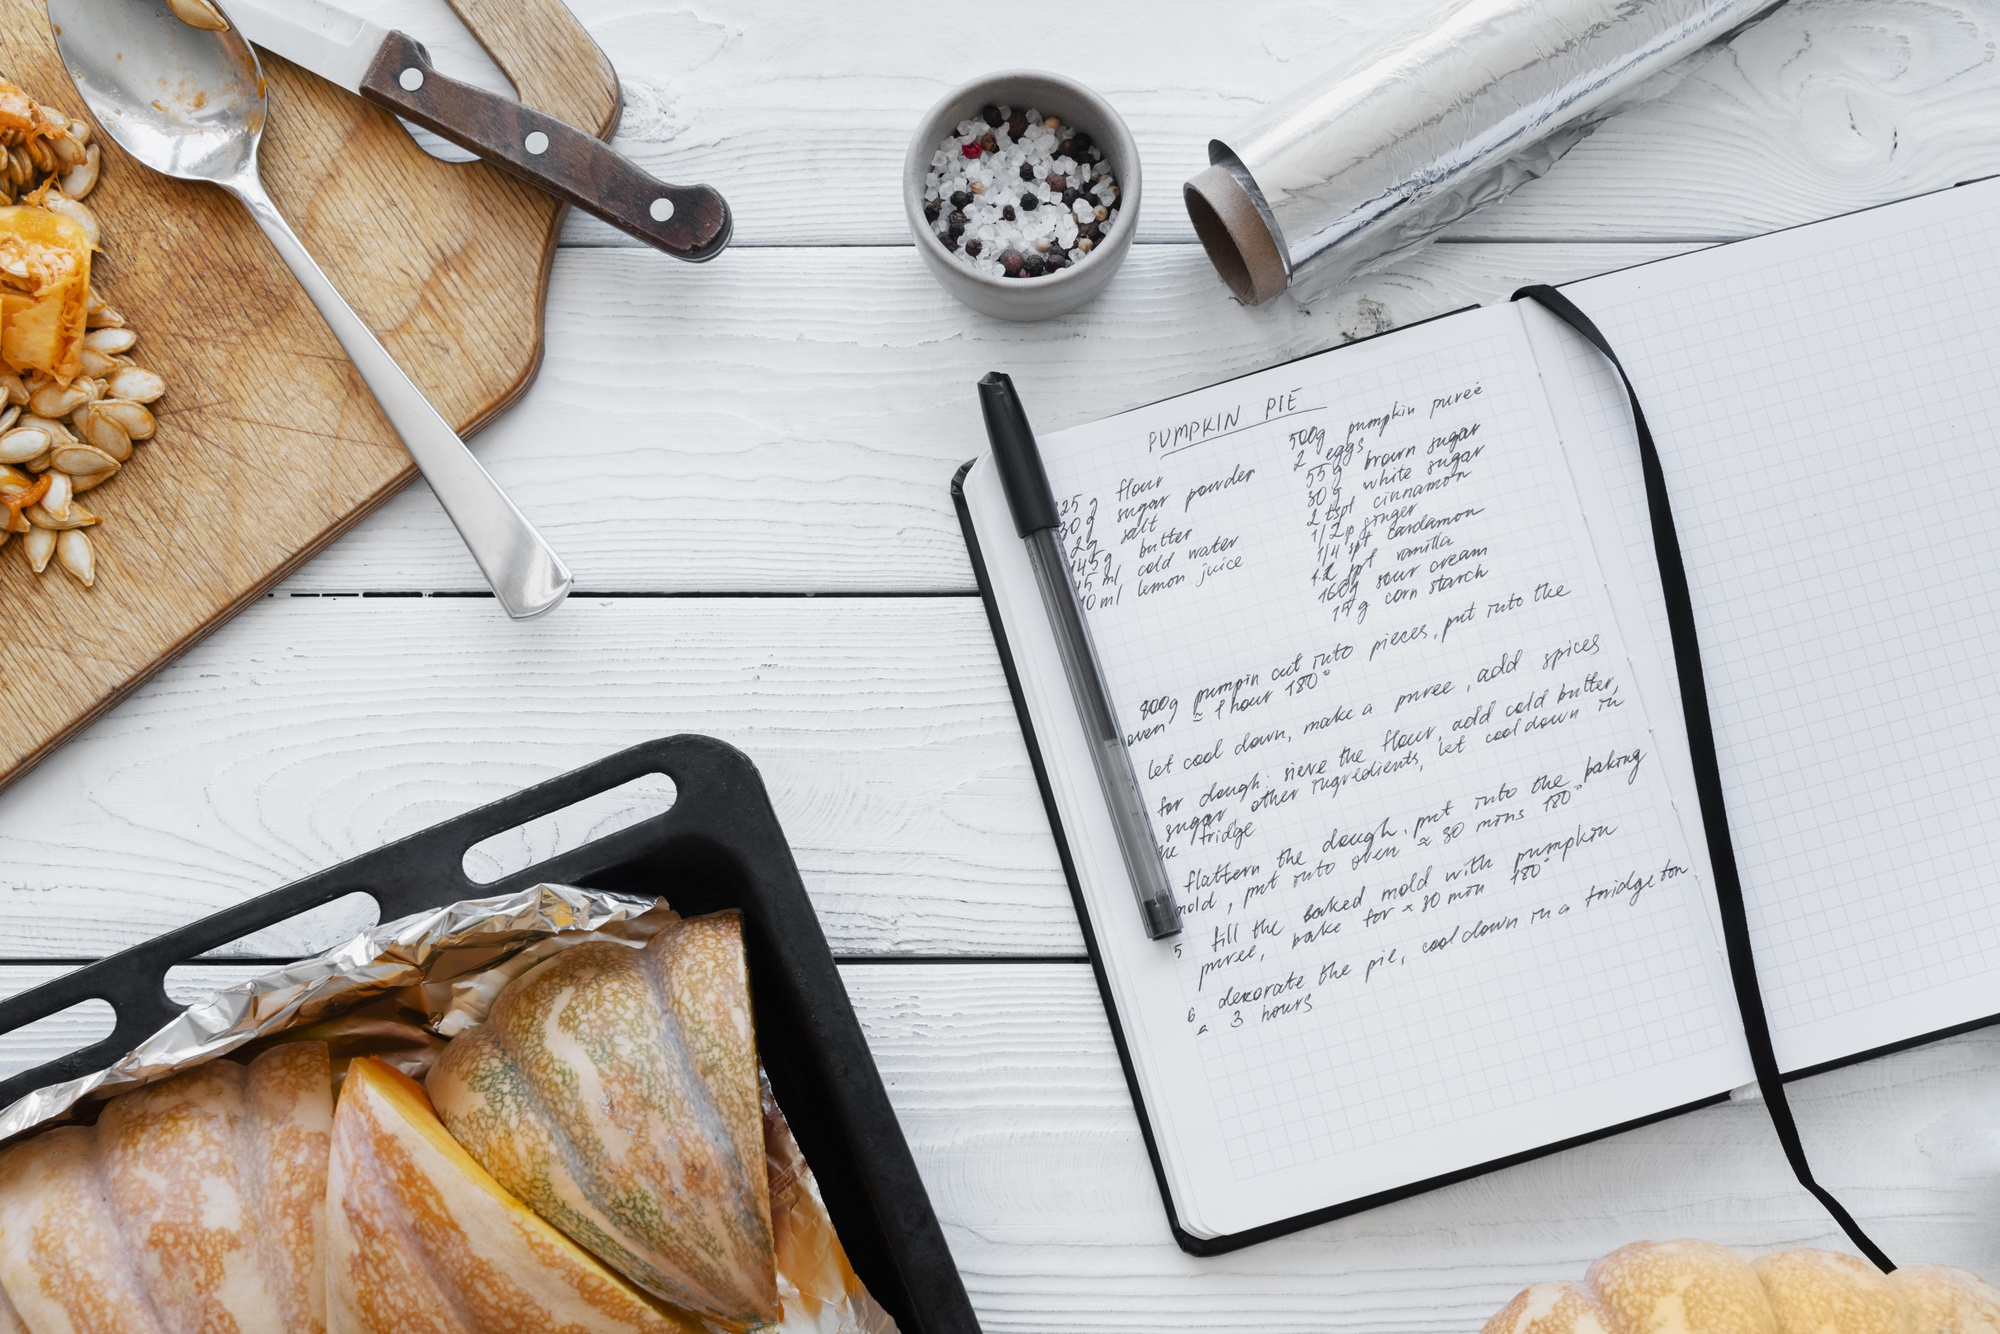 PUMPKIN PIE
25 g flour
30g sugar powder
2g salt
145g butter
15 ml cold water
10 ml lemon juice
500g pumpkin pureé
2 eggs
55g brown sugar
30g white sugar
2 tspt cinnamon
1/2 p ginger
1/4 spt cardamon
pt vanilla
160g sour cream
15g corn starch
800g pumpin cut into pieces, put into the
oven ≃ 1 hour 180°
let cool down, make a puree, add spices
for dough: sieve the flour, add cold butter,
sugar other ingredients, let cool down in
fridge
flattern the dough, put into the baking
mold, put into oven ≈ 30 mins 180°
5 fill the baked mold with pumpkin
puree, bake for ≈ 30 min 180°
6 decorate the pie, cool down in a fridge for
a 3 hours